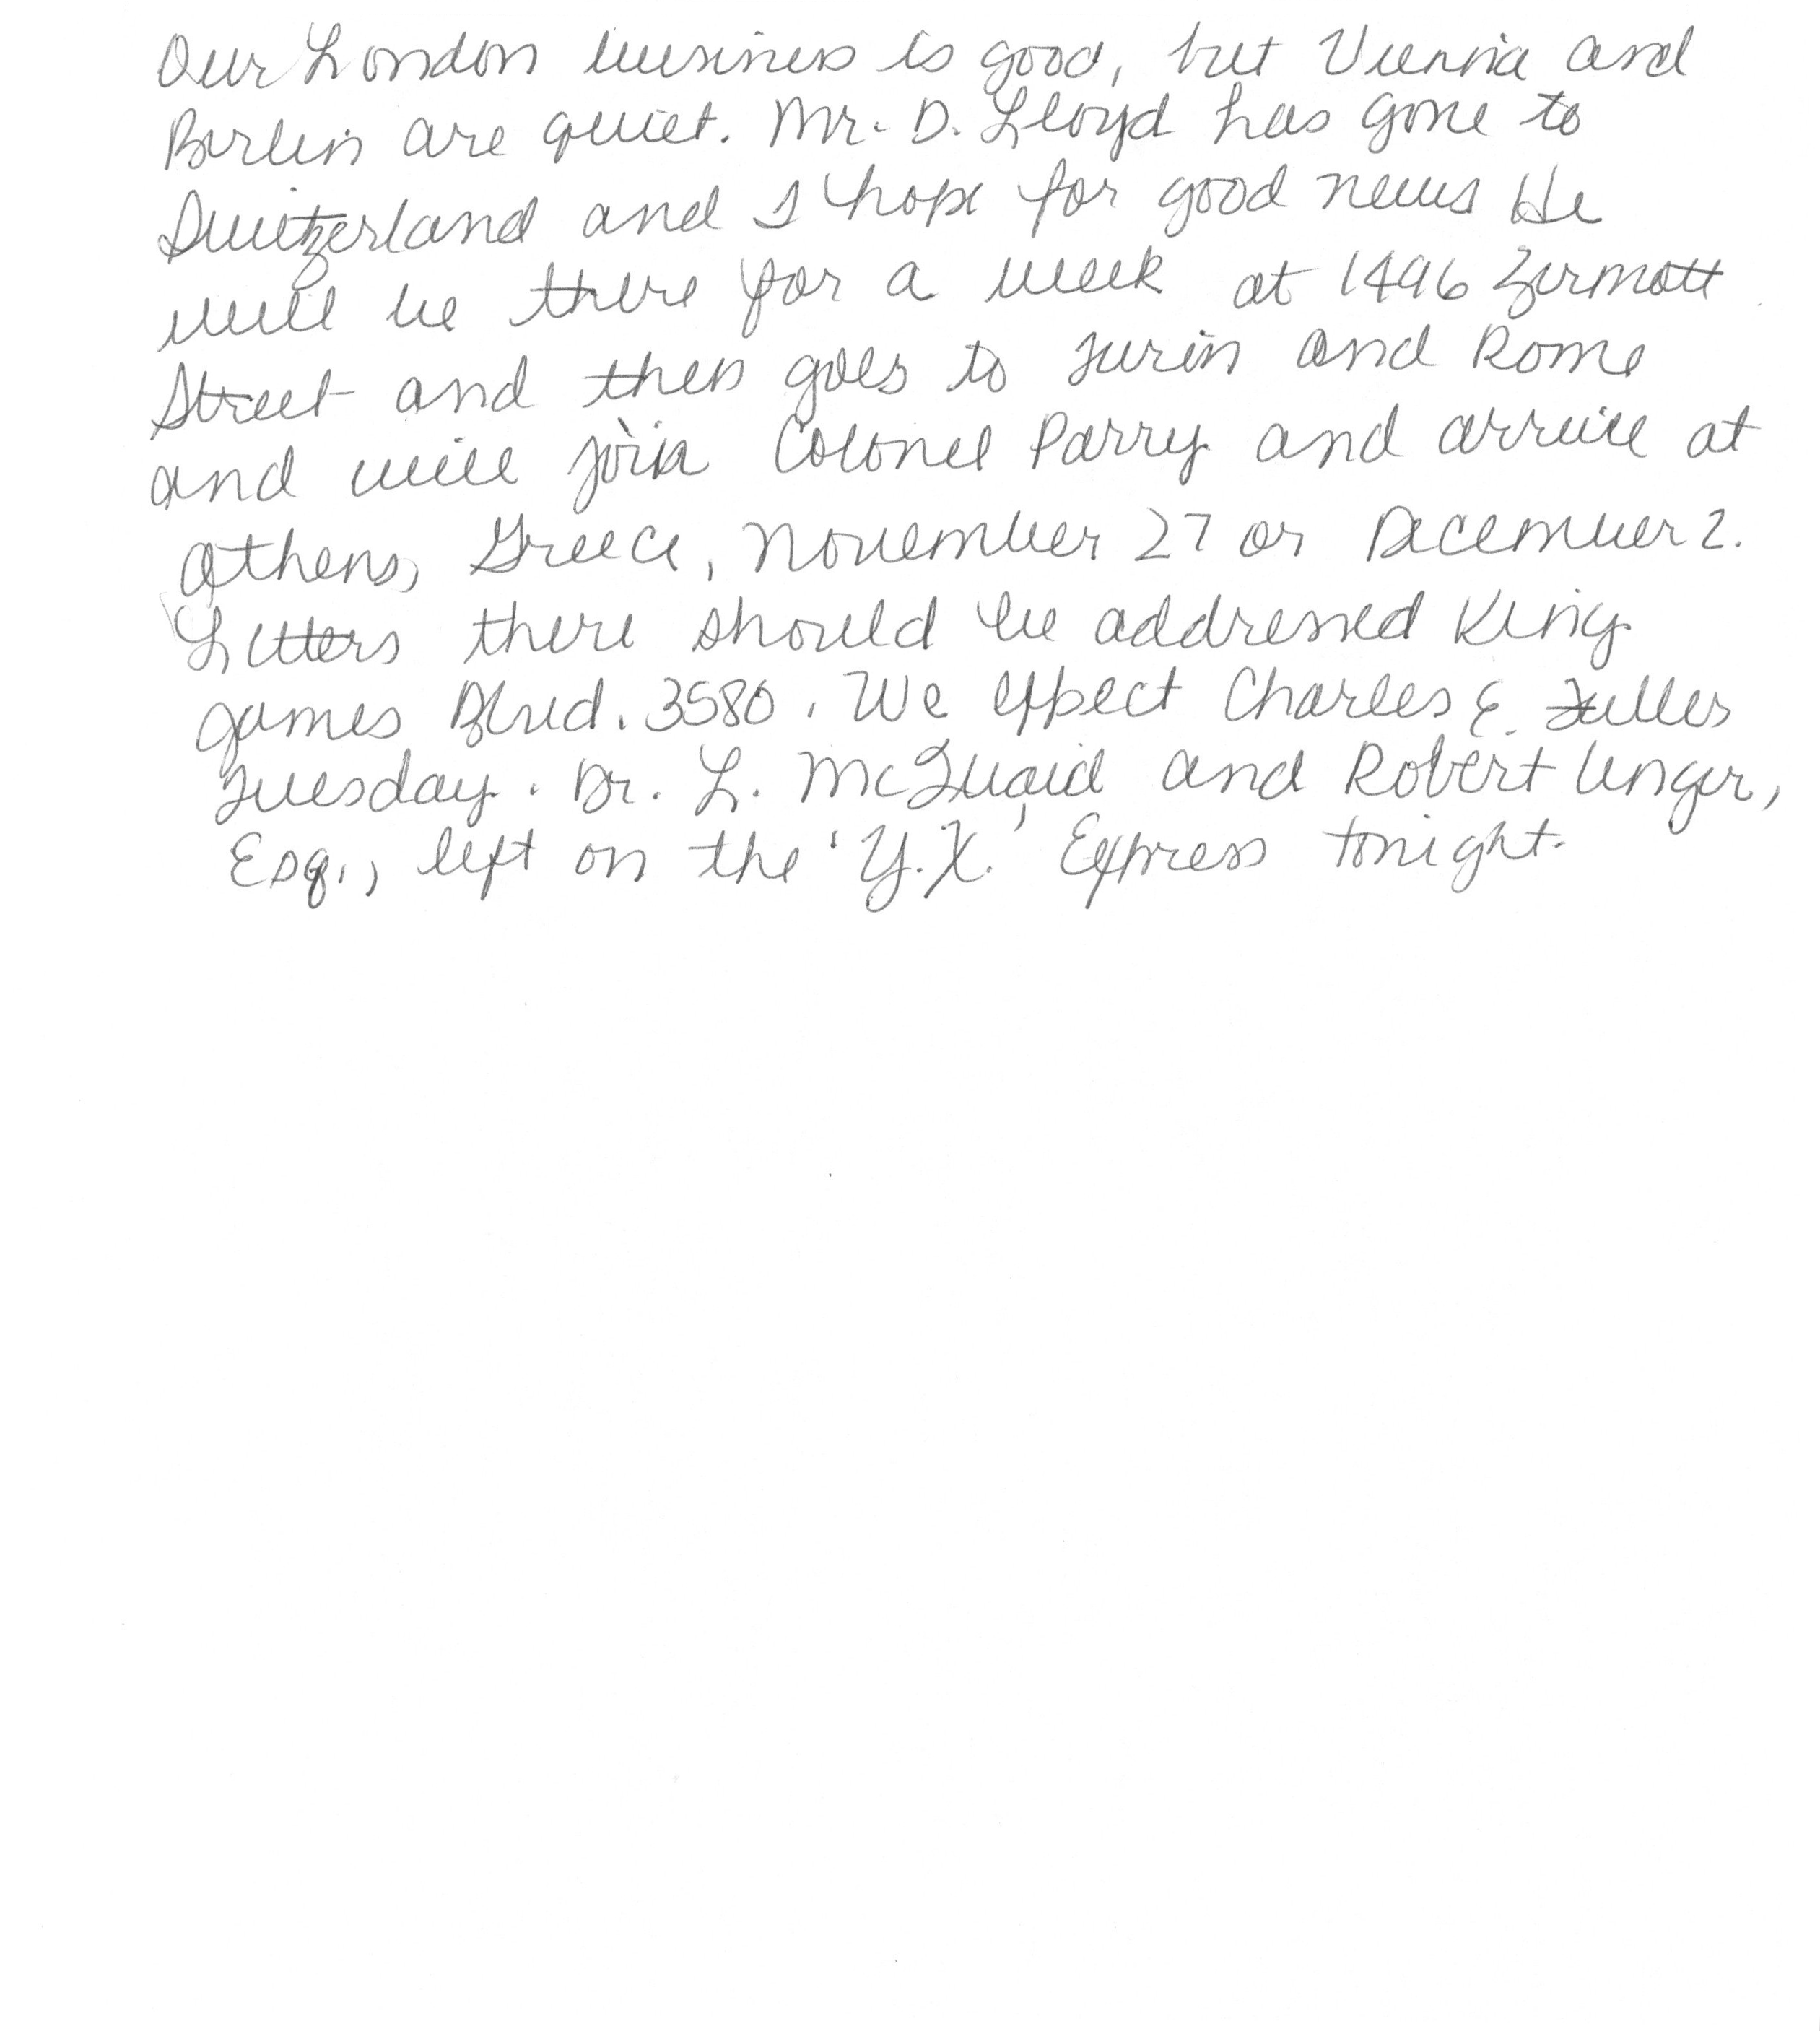 Our London business is good, but Vienna and
Berlin are quiet. Mr. D. Lloyd has gone to
Switzerland and I hope for good news He
will be there for a week at 1496 Zermott
Street and then goes to Turin and Rome
and will join Colonel Parry and arrive at
Athens, Greece, November 27 or December 2.
Letters there should be addressed King
James Blvd. 3580. We expect Charles E. Fuller
Tuesday. Dr. L. McQuaid and Robert Unger,
Esq., left on the 'Y.X.' Express tonight.